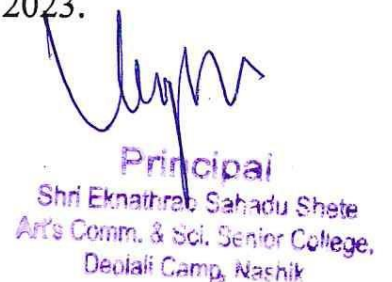 2023.
Principal
Shri Eknathrao Sahadu Shete
Art's Comm. & Sci. Senior College,
Deolali Camp, Nashik